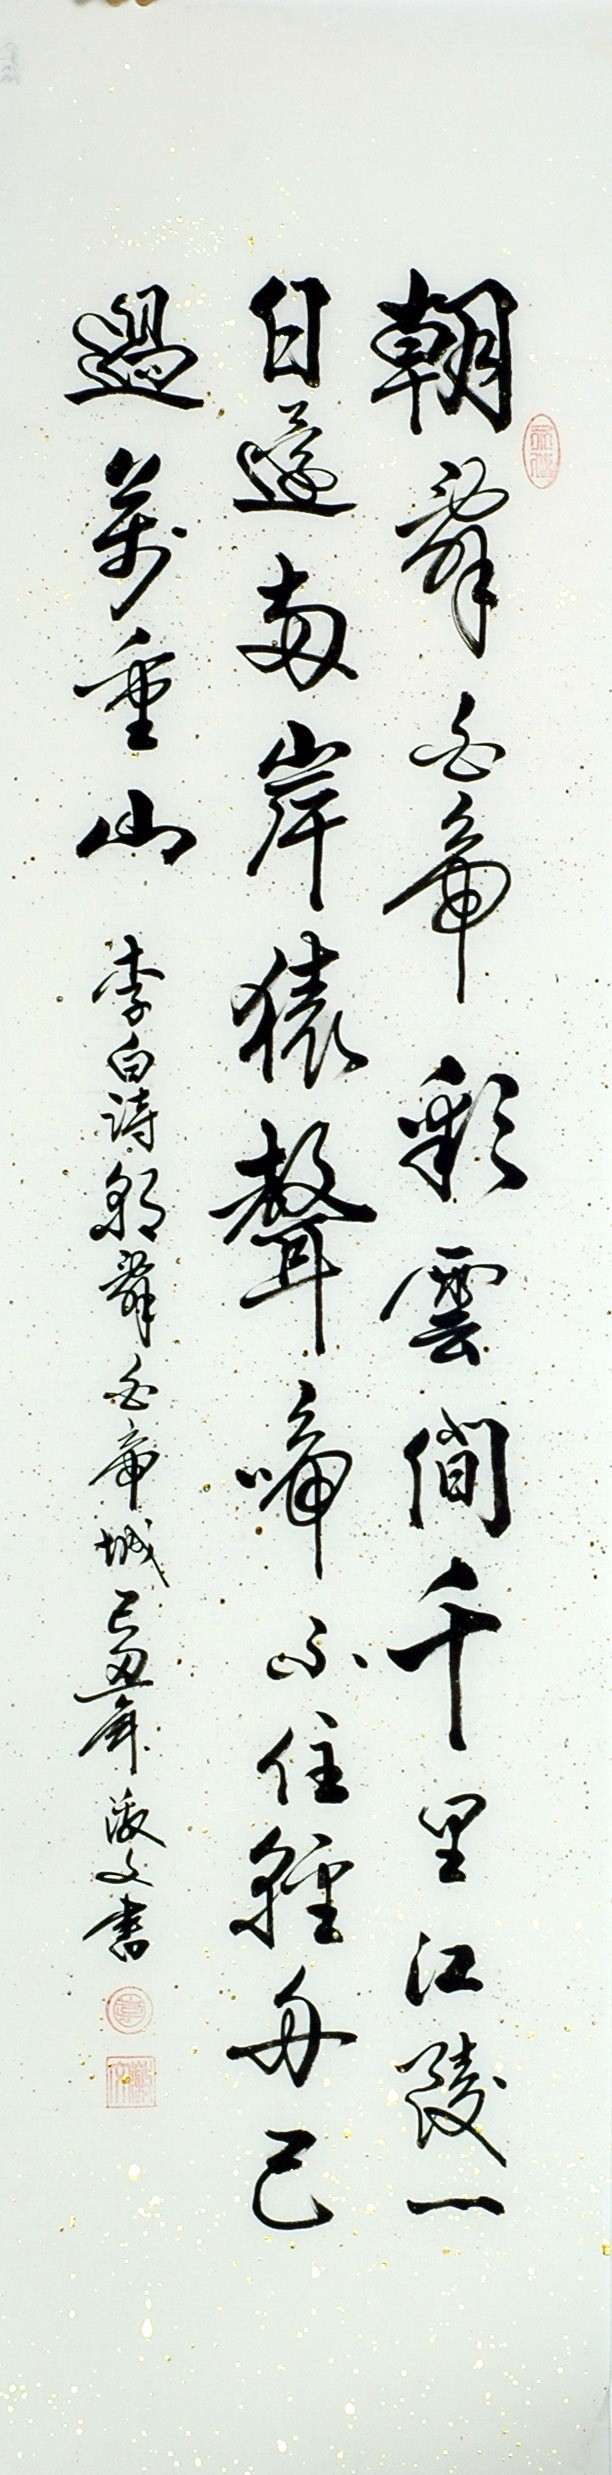 朝辭白帝彩雲間千里江陵一
日還兩岸猿聲啼不住輕舟已
過萬重山
李白詩朝辭白帝城己丑年激文書